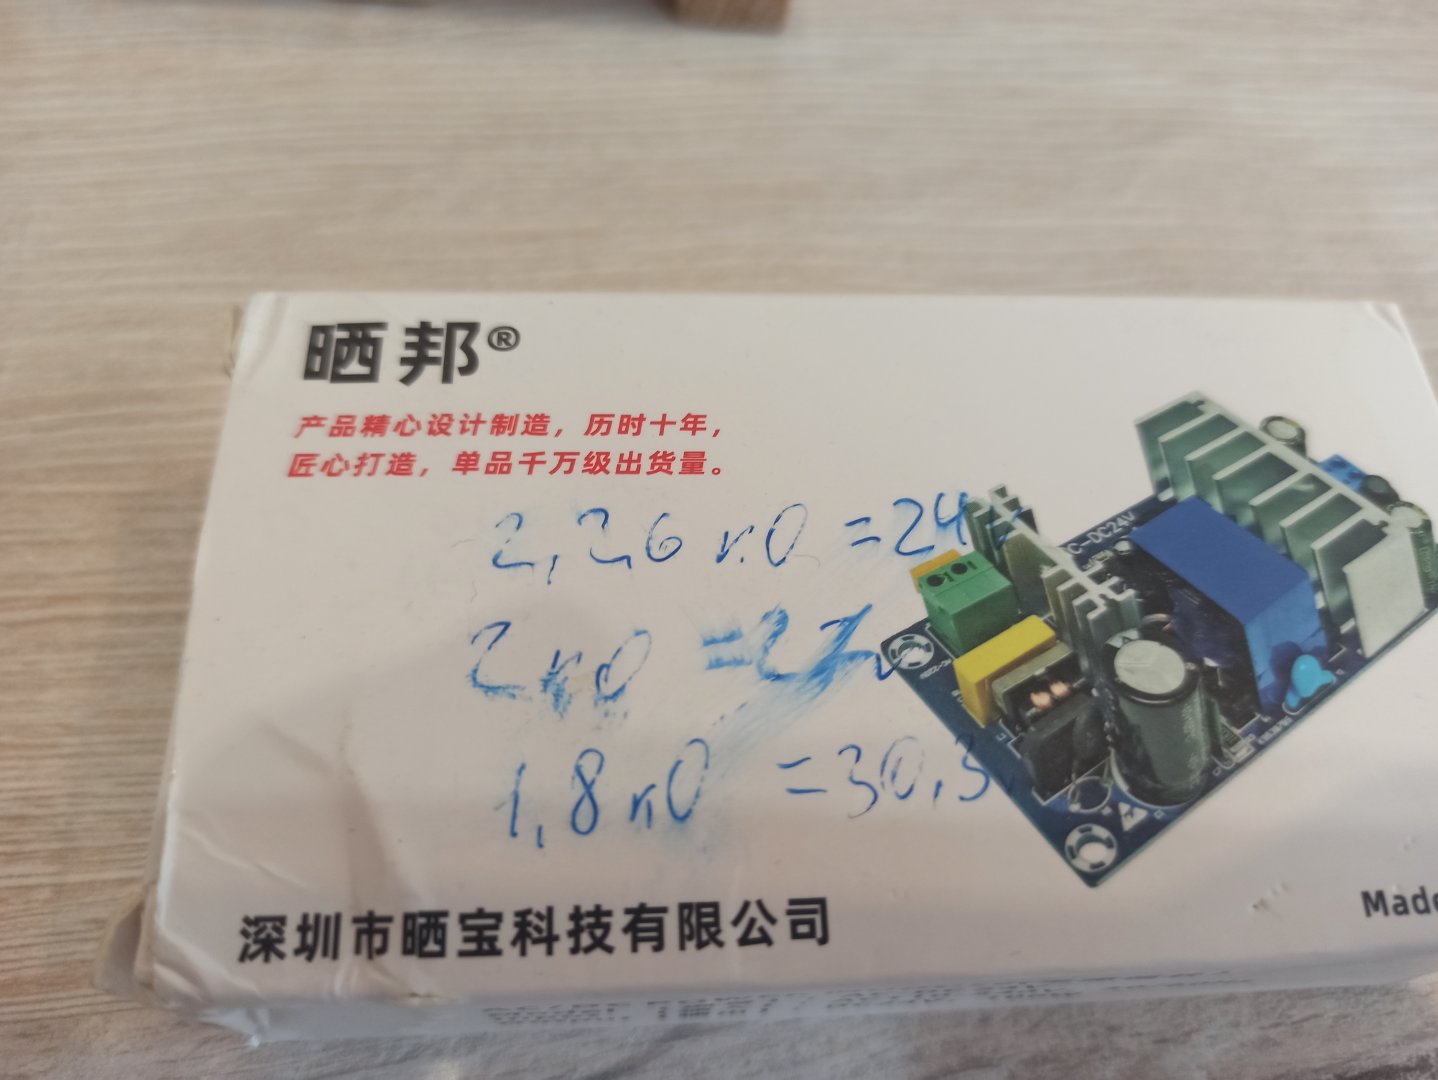 晒邦®
产品精心设计制造，历时十年，
匠心打造，单品千万级出货量。
2,26 кО =24
2 кО =27
1,8 кО =30,3
C-DC24V
深圳市晒宝科技有限公司
Made